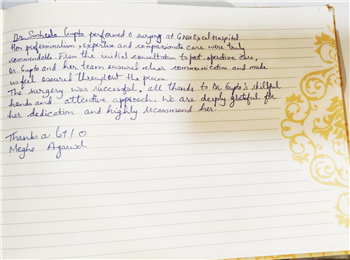 Dr Sucheeta Gupta performed a surgery at GNH Excel Hospital
Her professionalism, expertise and compassionate care were truly
commendable. From the initial consultation to post-operative care,
Dr Gupta and her team ensured clear communication and made
us feel assured throughout the process.
The surgery was successful, all thanks to Dr Gupta's skillful
hands and attentive approach. We are deeply grateful for
her dedication and highly recommend her.
Thanks a lot
Megha Agarwal